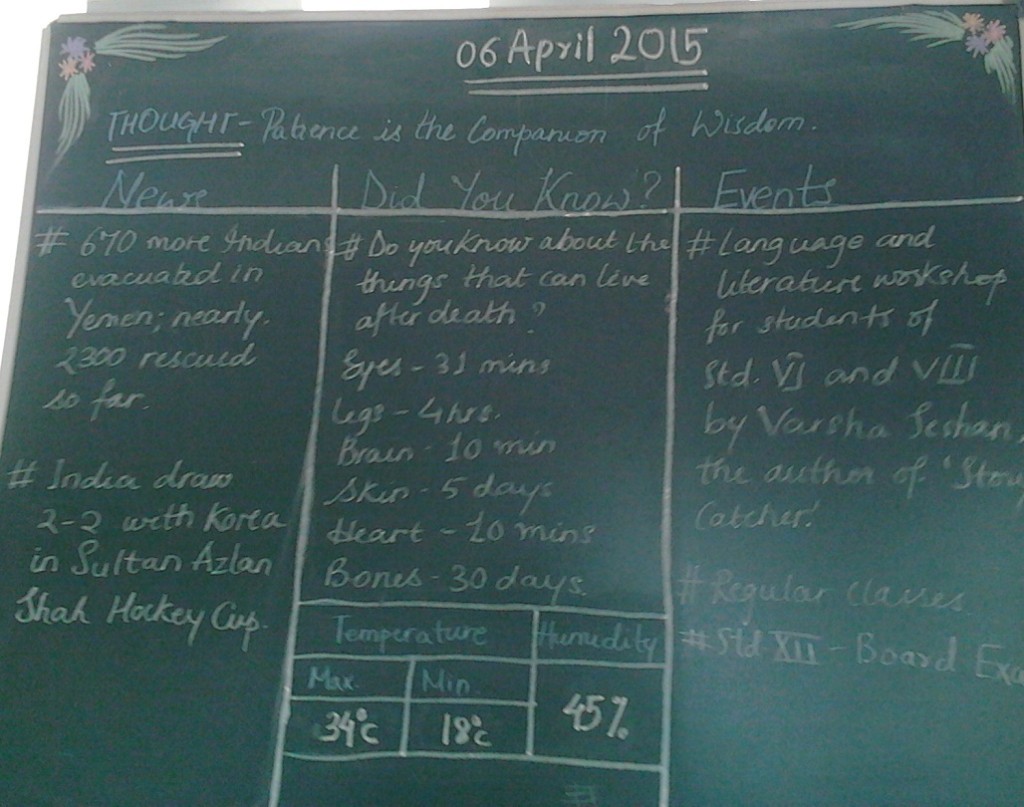 06 April 2015
THOUGHT - Patience is the Companion of Wisdom.
News
# 670 more Indians
evacuated in
Yemen; nearly.
2300 rescued
so far.
# India draw
2-2 with Korea
in Sultan Azlan
Shah Hockey Cup.
Did You Know?
# Do you know about the
things that can live
after death?
Eyes - 31 mins
Legs - 4 hrs.
Brain - 10 min
Skin - 5 days
Heart - 10 mins
Bones - 30 days.
Temperature
Humidity
Max.
Min.
34°c
18°c
45%
Events
# Language and
literature workshop
for students of
Std. VI and VIII
by Varsha Seshan,
the author of 'Story
Catcher.'
# Regular classes.
# Std XII - Board Exa